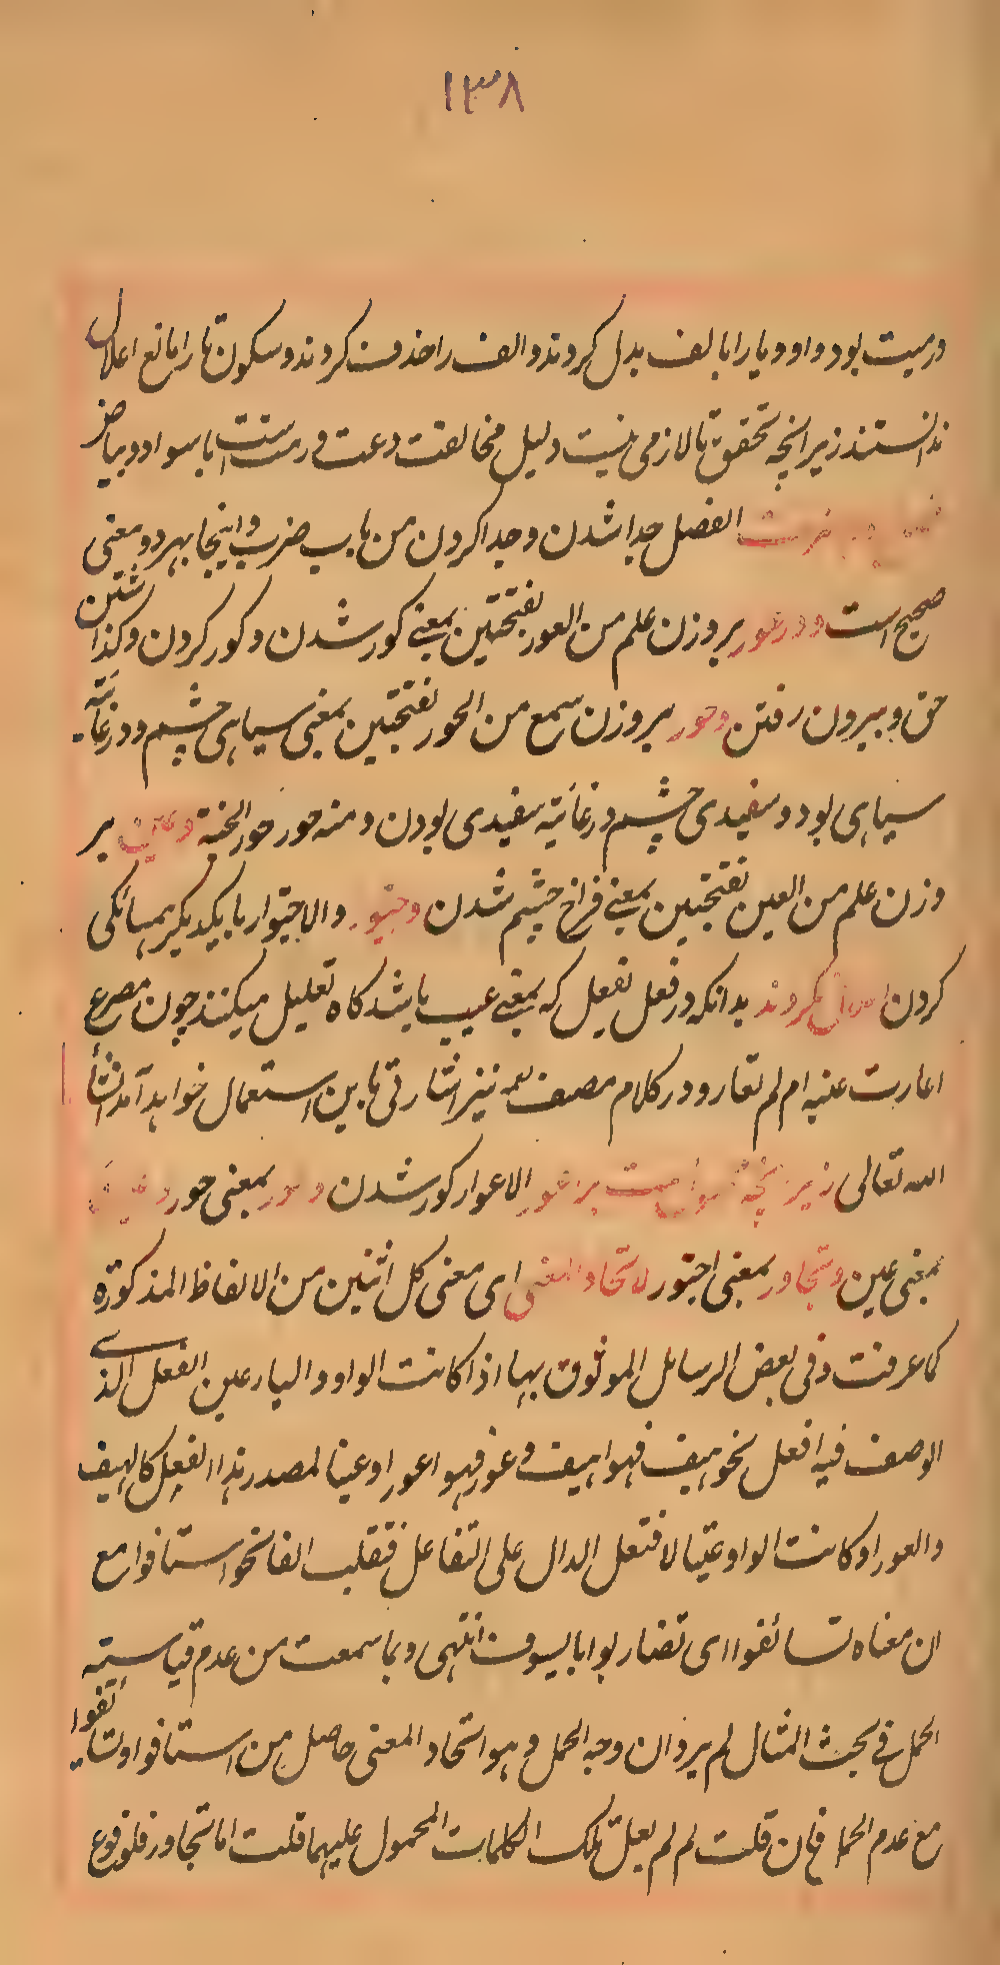 ۱۳۸
ورمیت بود واو و یا را بالف بدل کردند و الف را حذف کردند و سکون تا را مانع اعلال
ندانستند زیرانچه تحقق تا لازمی نیست دلیل مخالفت دعت و رمت است با سواد و بیاض
الفصل جدا شدن و جدا کردن من باب ضرب و اینجا بهر دو معنی
صحیح است و در عور بروزن علم من العور بفتحتین بمعنی کور شدن و کور کردن و کذاشتن
حق و بیرون رفتن وحور بروزن سمع من الحور بفتحتین بمعنی سیاهی چشم و در غایة
سیاهی بود و سفیدی چشم در غایة سفیدی بودن و منه حور حور الجنة وعین بر
وزن علم من العین بفتحتین بمعنی فراخ چشم شدن وجتور والاجتوار با یکدیکر همسائکی
کردن اعلال نکردند بدانکه در فعل یفعل که بمعنی عیب باشد کاه تعلیل میکنند چون مصرع
اعارت عنیه ام لم تعارا ودر کلام مصنف نیز اشارتی باین استعمال خواهد آمد انشأ
الله تعالی زیرانچه بر اعور الاعوار کور شدن و احور بمعنی حور
بمعنی عین وتجاور بمعنی اجتور لاتحاد المعنی ای معنی کل اثنین من الالفاظ المذکورة
کما عرفت وفی بعض الرسایل الموثوق بها اذا کانت الواو والیاء عین الفعل الذی
الوصف فیه افعل نحو هیف فهو اهیف وعور فهو اعور او عینا لمصدر هذا الفعل کالهیف
والعور او کانت الواو عینا لافتعل الدال علی التفاعل فتقلب الفا نحو استافوا مع
ان معناه تسائفوا ای تضاربوا بالسیوف انتهی وبما سمعت من عدم قیاسیة
الحمل فی بحث المثال لم یرد ان وجه الحمل وهو اتحاد المعنی حاصل من استافوا وتسائفوا
مع عدم الحمل فان قلت لم لم یعل تلک الکلمات المحمول علیها قلت اما تجاور فلوقوع